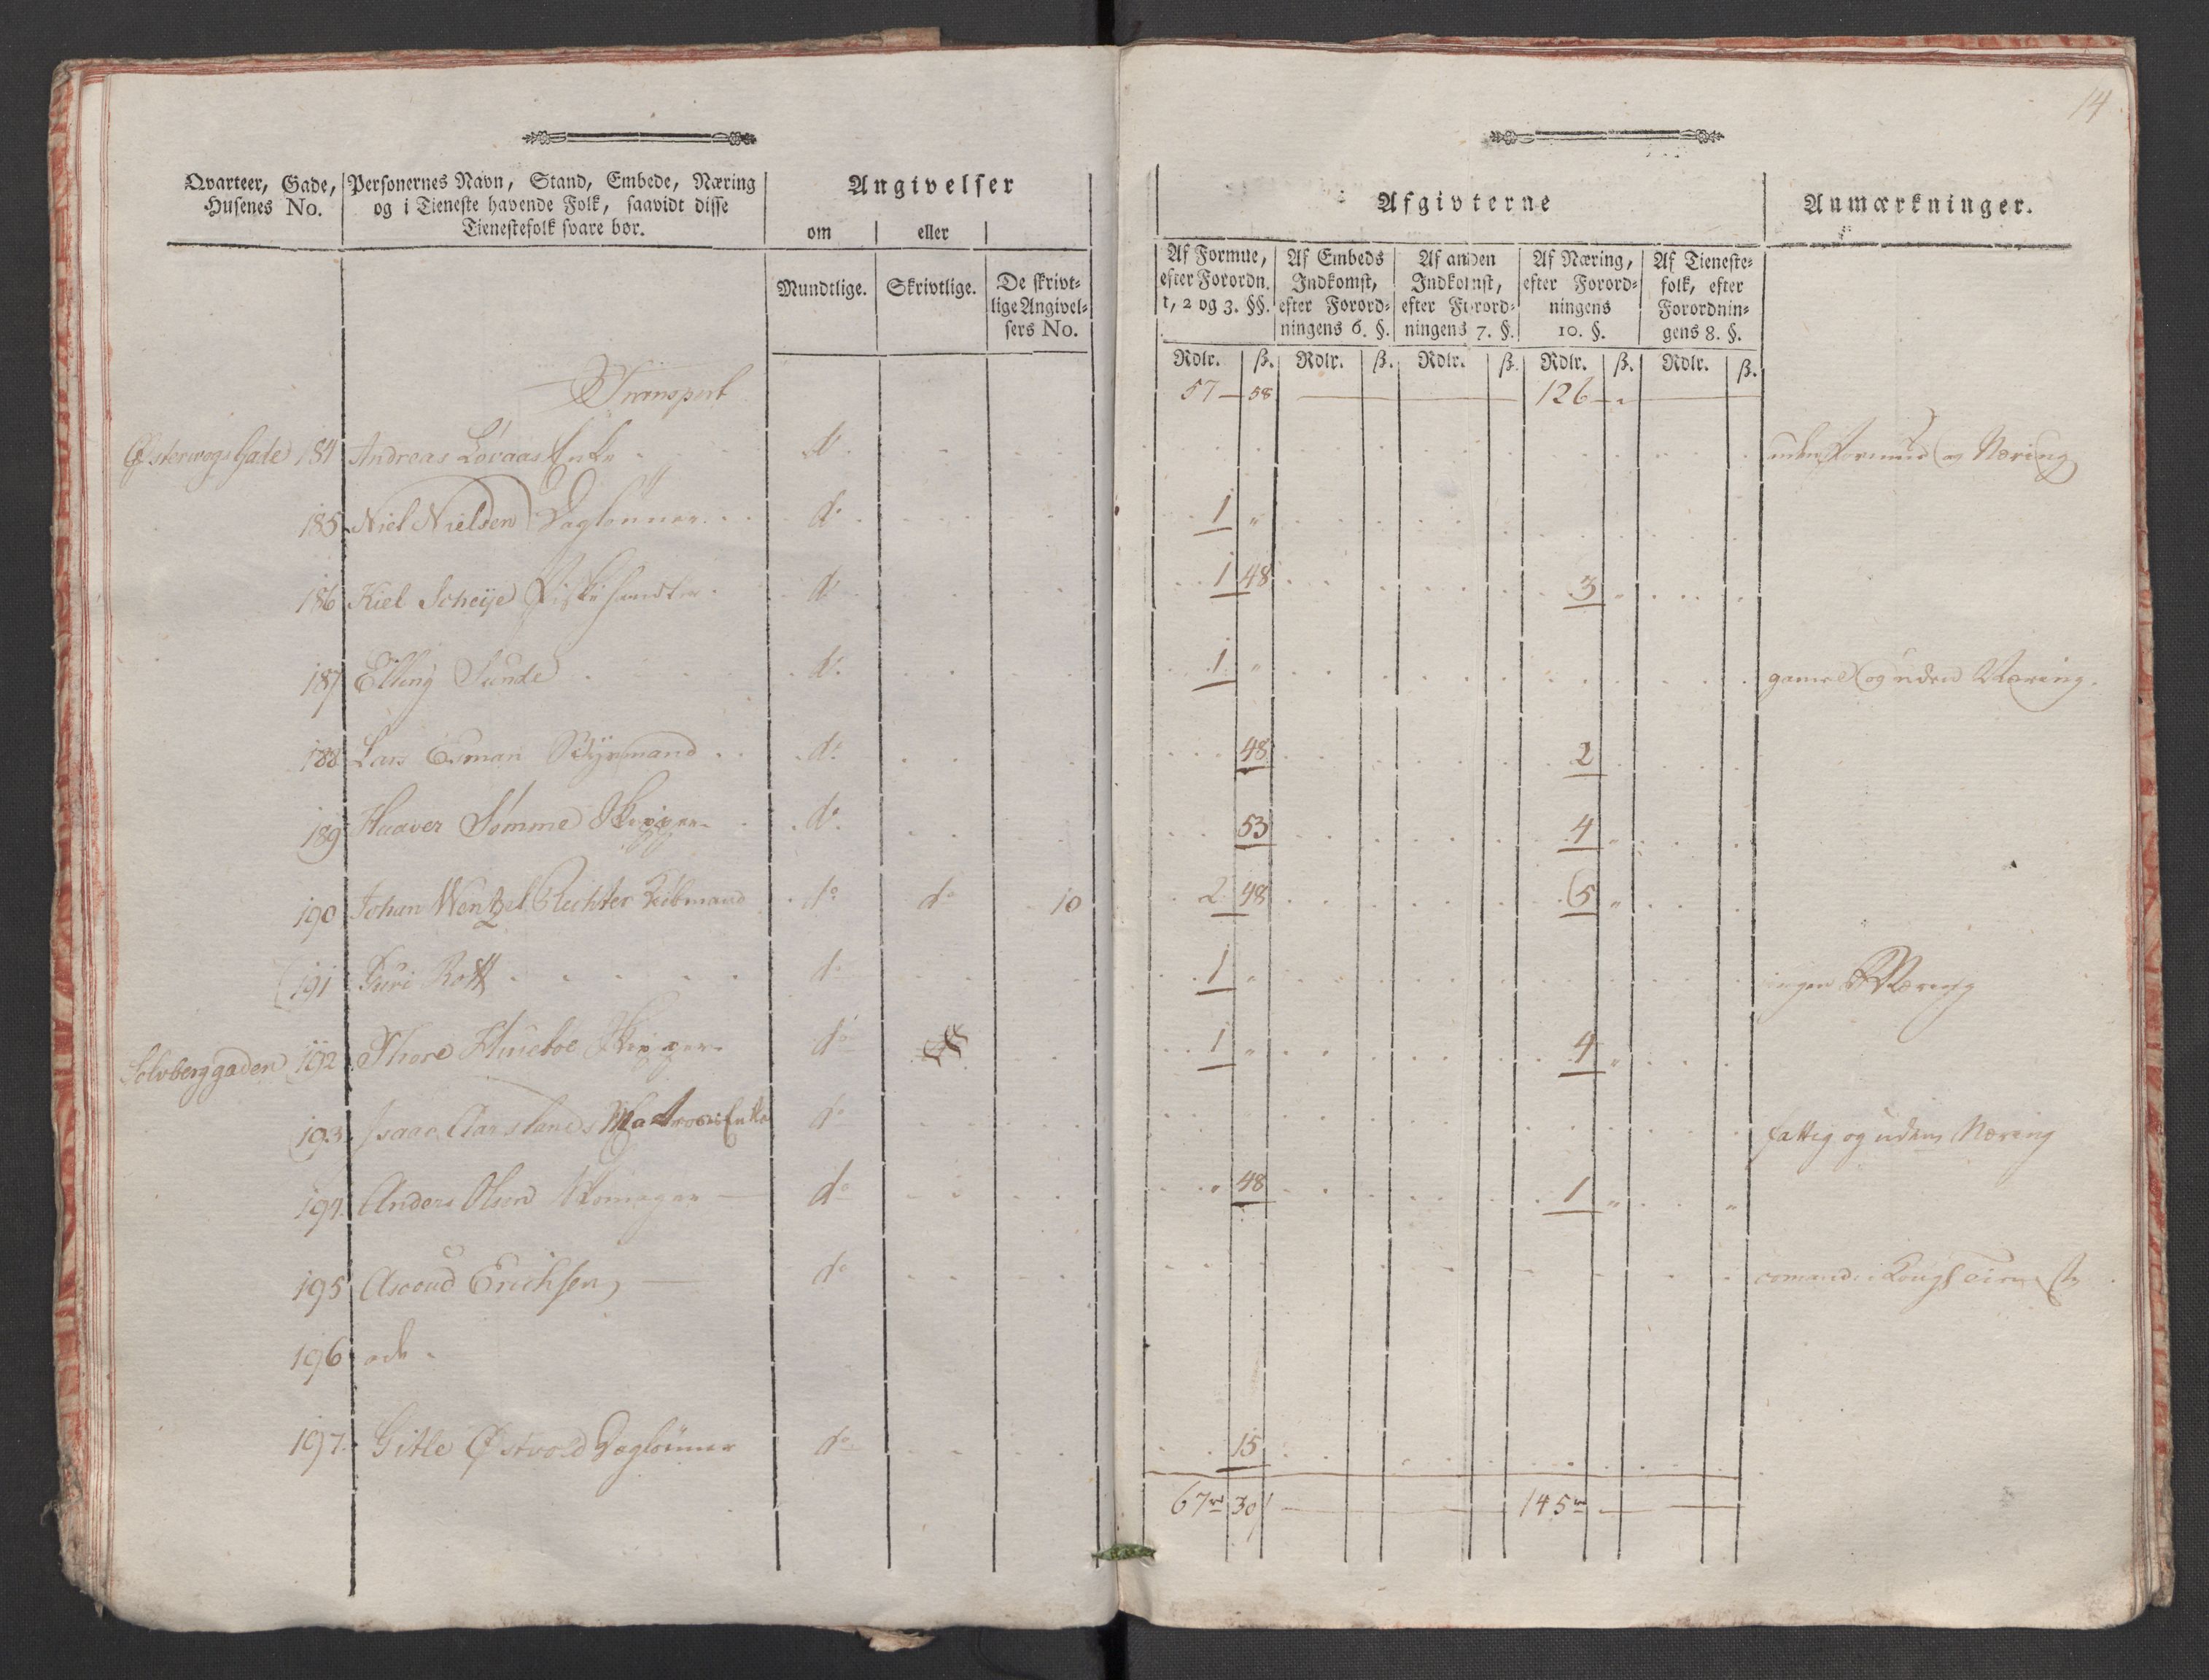 14
Qvarteer, Gade, Husenes No. | Personernes Navn, Stand, Embede, Næring og i Tieneste havende Folk, saavidt disse Tienestefolk svare bør. | Angivelser om | eller
Mundtlige. | Skrivtlige. | De skrivt-lige Angivel-sers No.
Afgivterne | Anmærkninger.
Af Formue, efter Forordn. 1, 2 og 3. §§. | Af Embeds Indkomst, efter Forord-ningens 6. §. | Af anden Indkomst, efter Forord-ningens 7. §. | Af Næring, efter Forord-ningens 10. §. | Af Tieneste-folk, efter Forordnin-gens 8. §.
Rdlr. | ß. | Rdlr. | ß. | Rdlr. | ß. | Rdlr. | ß. | Rdlr. | ß.
Transport 57 — 58 126 — "
Østervogs Gade 184 Andreas Lovaas Enke d° uden Formue og Næring
185 Niel Nielsen Daglønner d° 1 "
186 Kiel Scheije Fiskehandler d° 1 48 3 "
187 Elling Sunde d° 1 " gamel og uden Næring.
188 Lars Esman Styrmand d° 48 2
189 Haaver Sømme Skipper d° 53 4 "
190 Johan Wentzel Richter Kiøbmand d° d° 10 2 48 5 "
191 Guri Rott d° 1 " ingen Næring
Solvberggaden 192 Thore Hueboe Skipper d° 1 " 4 "
193 Isaac Aarslands Matroses Enke d° fattig og uden Næring
194 Anders Olsen Skomager — d° " 48 1 " "
195 Asoud Erichsen — d° comand: i Kongs Tieneste
196 øde
197. Gitle Østvold Daglønner d° 15
67 rd 30 ß — 145 rd —